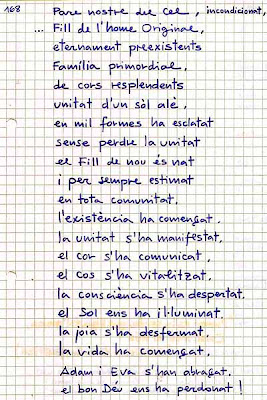 168 Pare nostre del Cel, incondicionat,
... Fill de l'home Original,
eternament preexistents
Família primordial,
de cors resplendents
unitat d'un sòl alè,
en mil formes ha esclatat
sense perdre la unitat
el Fill de nou és nat
i per sempre estimat
en tota comunitat.
l'existència ha començat,
la unitat s'ha manifestat,
el cor s'ha comunicat,
el cos s'ha vitalitzat,
la consciència s'ha despertat.
el Sol ens ha il·luminat.
la joia s'ha desfermat.
la vida ha començat,
Adam i Eva s'han abraçat.
el bon Déu ens ha perdonat!